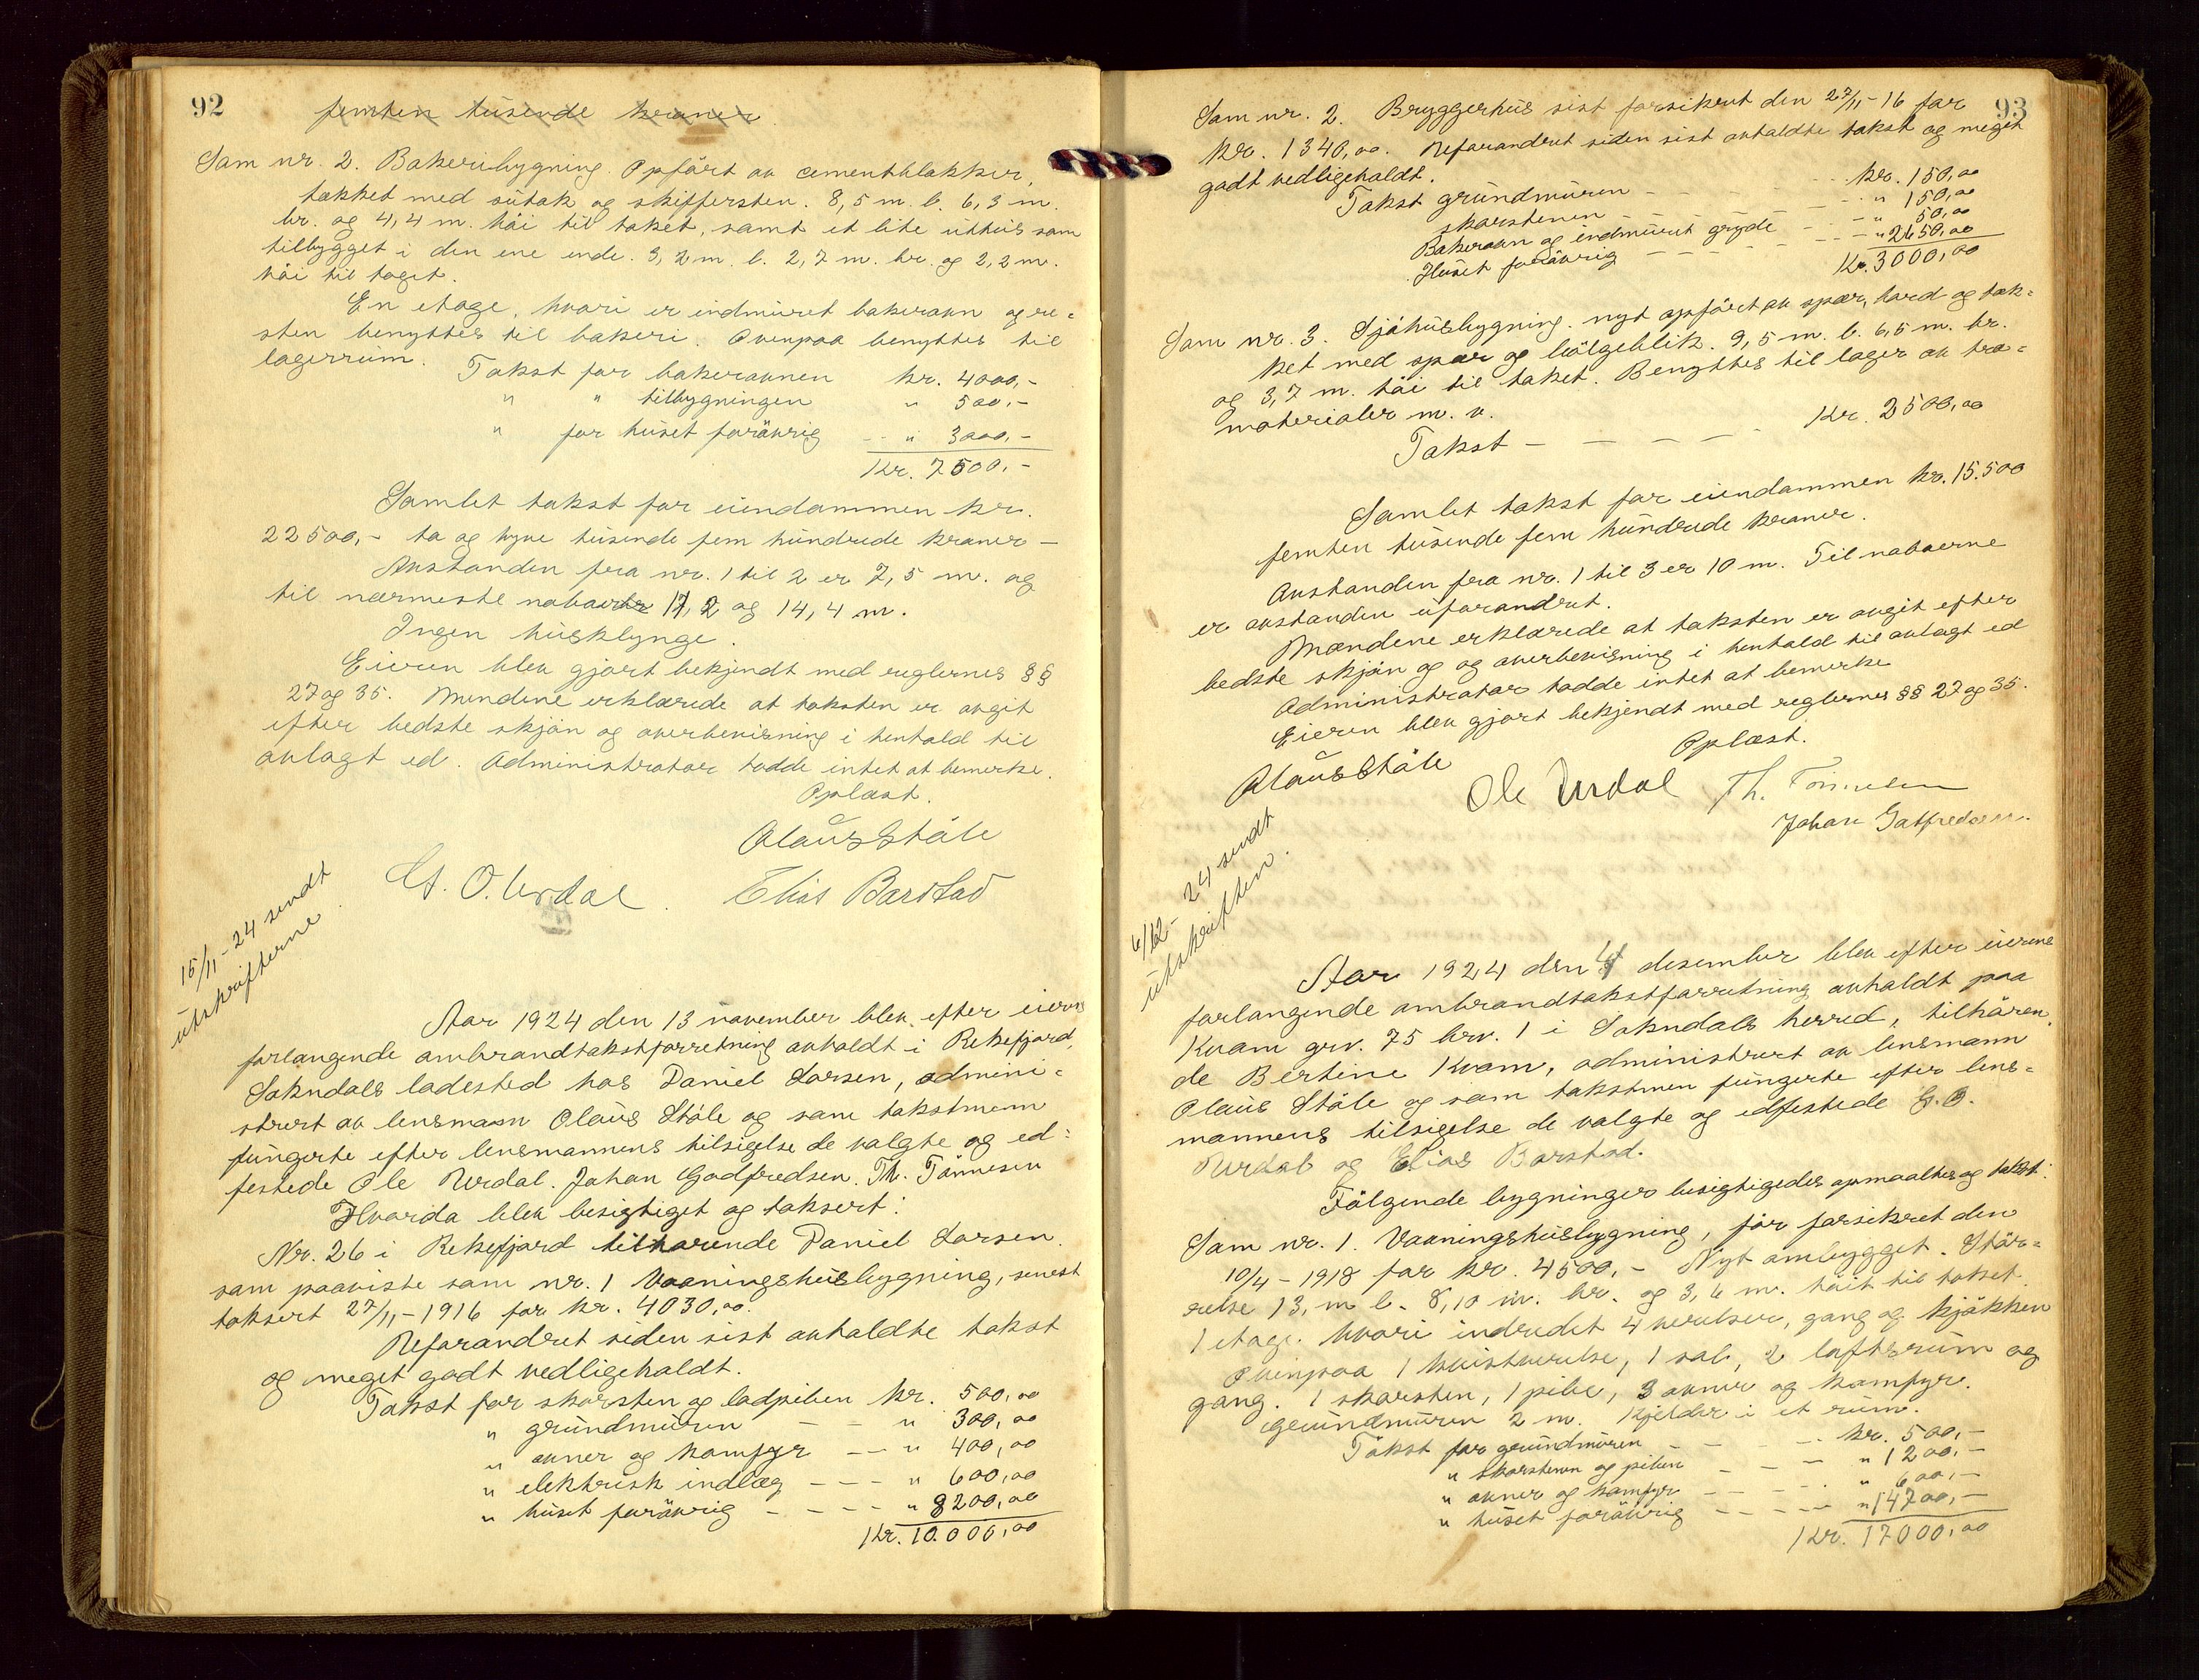 92
femten tusende kroner.
Som nr. 2. Bakeribygning. Opført av cementblokker,
tækket med sutak og skiffersten. 8,5 m. l. 6,3 m.
br. og 4,4 m. høi til taket, samt et lite uthus som
tilbygget i den ene ende. 3,2 m. l. 2,7 m. br. og 2,2 m.
høi til taget.
En etage, hvori er indmuret bakerovn og re-
sten benyttes til bakeri. Ovenpaa benyttes til
lagerrum.
Takst for bakerovnen kr. 4000,-
" " tilbygningen " 500,-
" for huset forøvrig -- " 3000,-
Kr. 7500,-
Samlet takst for eiendommen kr.
22500,- to og tyve tusende fem hundrede kroner -
Avstanden fra nr. 1 til 2 er 7,5 m. og
til nærmeste naboer 17,2 og 14,4 m.
Ingen husklynge.
Eieren blev gjort bekjendt med reglernes §§
27 og 35. Mændene erklærede at taksten er avgit
efter bedste skjøn og overbevisning i henhold til
avlagt ed. Administrator hadde intet at bemerke.
Oplæst.
Olaus Ståle
G. O. Urdal. Elias Barstad
15/11-24 sendt
utskrifterne.
Aar 1924 den 13 november blev efter eierens
forlangende ombrandtakstforretning avholdt i Rekefjord,
Sokndals ladested hos Daniel Larsen, admini-
strert av lensmann Olaus Ståle og som takstmenn
fungerte efter lensmannens tilsigelse de valgte og ed-
festede Ole Urdal. Johan Godfredsen. Th. Tønnesen
Hvorda blev besigtiget og taksert:
Nr. 26 i Rekefjord tilhørende Daniel Larsen.
som paaviste som nr. 1 Vaaningshusbygning, senest
taksert 27/11-1916 for kr. 4030,00.
Uforandret siden sist avholdte takst
og meget godt vedligeholdt.
Takst for skorsten og ladpiben kr. 500,00
" grundmuren - - " 300,00
" ovner og komfyr -- " 400,00
" elektrisk indlæg --- " 600,00
" huset forøvrig --- " 8200,00
Kr. 10.000,00
93
Som nr. 2. Bryggerhus sist forsikret den 27/11-16 for
kr. 1340,00. Uforandret siden sist avholdte takst og meget
godt vedligeholdt.
Takst grundmuren ---- kr. 150,00
skorstenen -- " 150,00
Bakerovn og indmuret gryde -- " 50,00
Huset forøvrig ---- " 2650,00
Kr. 3000,00
Som nr. 3. Sjøhusbygning. nyt opført av spær, bord og tæk-
ket med spær og bølgeblik. 9,5 m. l. 6,5 m. br.
og 3,7 m. høi til taket. Benyttes til lager av træ-
materialer m. v.
Takst ----- Kr. 2500,00
Samlet takst for eiendommen kr. 15.500
femten tusende fem hundrede kroner.
Avstanden fra nr. 1 til 3 er 10 m. Til naboerne
er avstanden uforandret.
Mændene erklærede at taksten er avgit efter
bedste skjøn og og overbevisning i henhold til avlagt ed
Administrator hadde intet at bemerke
Eieren blev gjort bekjendt med reglernes §§ 27 og 35.
Oplæst.
Olaus Ståle
Ole Urdal Th. Tönnesen
Johan Gotfredsen.
6/12-24 sendt
utskriften.
Aar 1924 den 4 desember blev efter eierens
forlangende ombrandtakstforretning avholdt paa
Kvam grv. 75 brv. 1 i Sokndals herred, tilhøren
de Bertine Kvam, administrert av lensmann
Olaus Ståle og som takstmen fungerte efter lens-
mannens tilsigelse de valgte og edfestede G. O.
Urdal og Elias Barstad.
Følgende bygninger besigtigedes opmaaltes og takst:
Som nr. 1. Vaaningshusbygning, før forsikret den
10/4-1918 for kr. 4500,- Nyt ombygget. Stør-
relse 13, m l. 8,10 m. br. og 3,6 m. høit til taket.
1 etage. hvori indredet 4 verelser, gang og kjøkken
Ovenpaa 1 kvistverelse, 1 sal, 2 loftsrum og
gang. 1 skorsten, 1 pibe, 3 ovner og komfyr.
grundmuren 2 m. Kjelder i et rum.
Takst for grundmuren --- kr. 500,-
" skorstenen og piben --- " 1200,-
" ovner og komfyr ---- " 600,-
" huset forøvrig ---- " 14700,-
Kr. 17000,00